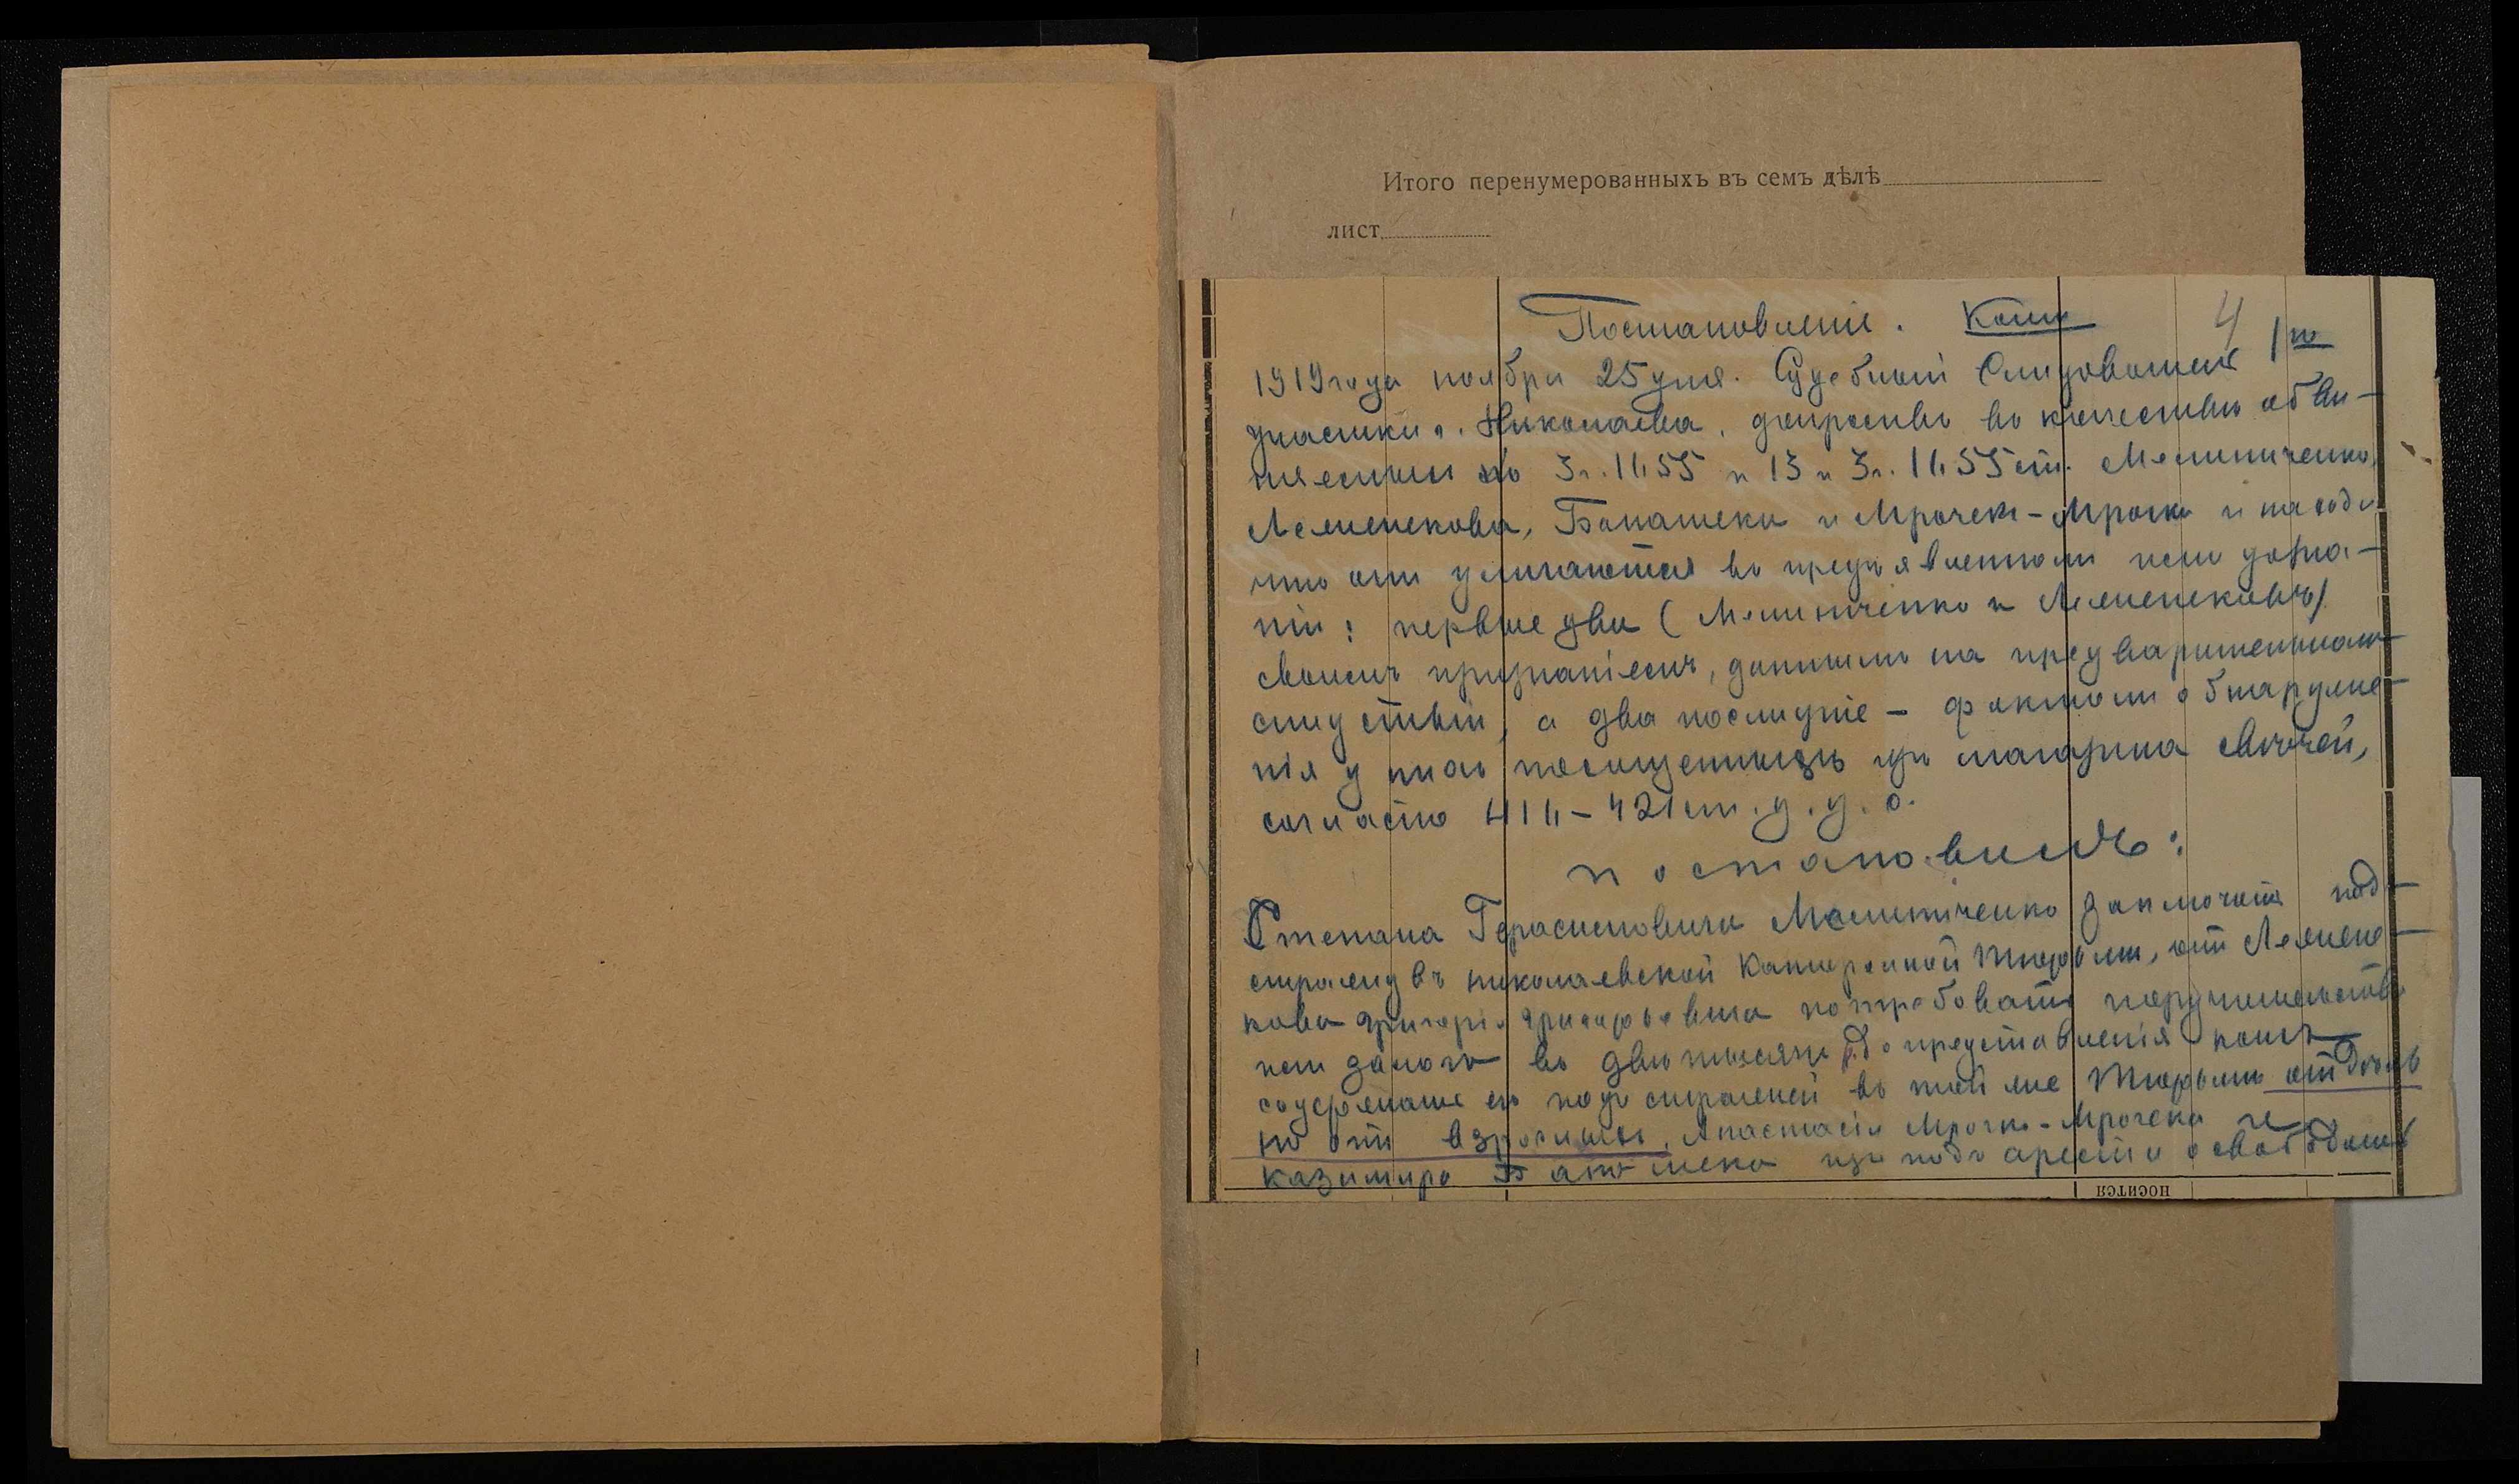 Итого перенумерованныхъ въ семъ дѣлѣ
лист
Постановленіе. Копія 4
1919 года ноября 25 дня. Судебный Слѣдователь 1го
участка г. Николаева, допросивъ въ качествѣ обви-
няемыхъ по 3 ч. 1655 и 13 и 3 ч. 1655 ст. Мельниченко,
и Мрочек-Мрочко и находя
что они уличаются въ предъявленномъ имъ дозна-
ніи: первые два (Мельниченко и
своимъ признаніемъ, даннымъ на предварительномъ
слѣдствіи, а два послѣдніе - фактомъ обнаруже-
нія у нихъ похищенныхъ изъ магазина свѣчей,
согласно 416-421 ст. у. у. с.
постановилъ:
Степана Герасимовича Мельниченко заключить под
стражу въ николаевской Каторжной тюрьмѣ, отъ
кова Григорія Григорьевича потребовать поручительства
или залога въ двѣ тысячи р. до представленія коихъ
содержать его подъ стражей въ той же тюрьмѣ отдѣль
но отъ взрослыхъ, Анастасію Мрочко-Мрочека и
Казимира изъ подъ ареста освободить
носится